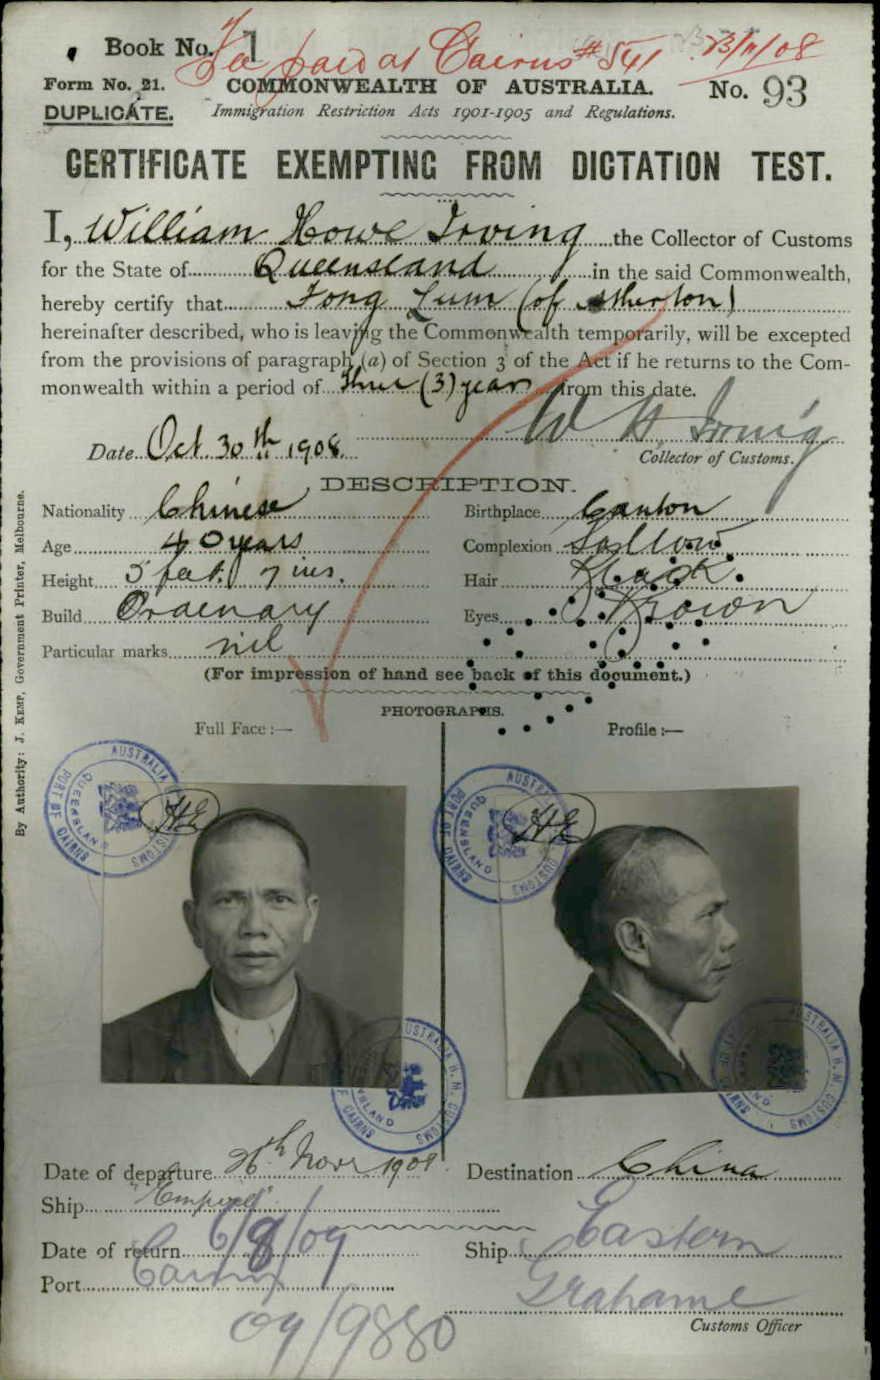 Book No. 1
Fee paid at Cairns # 541 23/11/08
Form No. 21. COMMONWEALTH OF AUSTRALIA. No. 93
DUPLICATE. Immigration Restriction Acts 1901-1905 and Regulations.
CERTIFICATE EXEMPTING FROM DICTATION TEST.
I, William Howe Irving the Collector of Customs
for the State of Queensland in the said Commonwealth,
hereby certify that Fong Lum (of Atherton)
hereinafter described, who is leaving the Commonwealth temporarily, will be excepted
from the provisions of paragraph (a) of Section 3 of the Act if he returns to the Com-
monwealth within a period of three (3) years from this date.
W H. Irving
Date Oct. 30th 1908.
Collector of Customs.
DESCRIPTION.
Nationality Chinese Birthplace Canton
Age 40 years Complexion Sallow
Height 5 feet. 7 ins. Hair Black
Build Ordenary Eyes Brown
Particular marks nil
(For impression of hand see back of this document.)
PHOTOGRAPHS.
Full Face :— Profile :—
AUSTRALIA H. M. CUSTOMS PORT OF CAIRNS QUEENSLAND
AUSTRALIA H. M. CUSTOMS PORT OF CAIRNS QUEENSLAND
AUSTRALIA H. M. CUSTOMS PORT OF CAIRNS QUEENSLAND
AUSTRALIA H. M. CUSTOMS PORT OF CAIRNS QUEENSLAND
Date of departure 26th Novr 1908. Destination China
Ship "Empire"
Date of return 6/8/09 Ship Eastern
Port Cairns
Grahame
Customs Officer
09/9880
By Authority: J. KEMP, Government Printer, Melbourne.